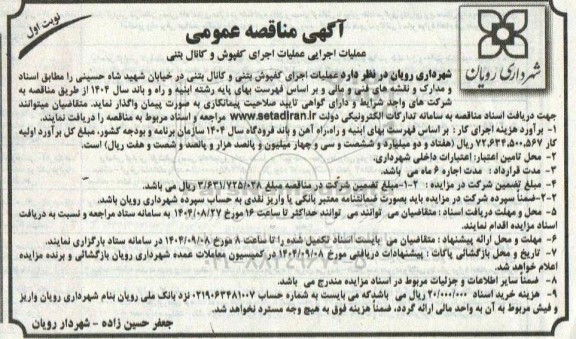 نوبت اول
آگهی مناقصه عمومی
عملیات اجرایی عملیات اجرای کفپوش و کانال بتنی
شهرداری رویان
شهرداری رویان در نظر دارد عملیات اجرای کفپوش بتنی و کانال بتنی در خیابان شهید شاه حسینی را مطابق اسناد
و مدارک و نقشه های فنی و مالی و بر اساس فهرست بهای پایه رشته ابنیه و راه و باند سال ۱۴۰۴ از طریق مناقصه به
شرکت های واجد شرایط و دارای گواهی تایید صلاحیت پیمانکاری به صورت پیمان واگذار نماید. متقاضیان میتوانند
جهت دریافت اسناد مناقصه به سامانه تدارکات الکترونیکی دولت www.setadiran.ir مراجعه و اسناد مربوط به مناقصه را دریافت نمایند.
۱- برآورد هزینه اجرای کار : بر اساس فهرست بهای ابنیه و راه،راه آهن و باند فرودگاه سال ۱۴۰۴ سازمان برنامه و بودجه کشور، مبلغ کل برآورد اولیه
کار ۷۲,۶۳۴,۵۰۰,۵۶۷ ریال (هفتاد و دو میلیارد و ششصت و سی و چهار میلیون و پانصد هزار و پانصد و شصت و هفت ریال) است.
۲- محل تامین اعتبار: اعتبارات داخلی شهرداری.
۳- مدت قرارداد : مدت اجاره ۶ ماه می باشد.
۴- مبلغ تضمین شرکت در مزایده : ۲-۱-مبلغ تضمین شرکت در مناقصه مبلغ ۳/۶۳۱/۷۲۵/۰۲۸ ریال می باشد.
۲-۲-ضمنا سپرده شرکت در مزایده باید بصورت ضمانتنامه معتبر بانکی یا واریز نقدی به حساب سپرده شهرداری رویان باشد.
۵- محل و مهلت دریافت اسناد : متقاضیان می توانند می توانند حداکثر تا ساعت ۱۶ مورخ ۱۴۰۴/۰۸/۲۷ به سامانه ستاد مراجعه و نسبت به دریافت
اسناد مزایده اقدام نمایند.
۶- مهلت و محل ارائه پیشنهاد : متقاضیان می بایست اسناد تکمیل شده را تا ساعت ۸ مورخ ۱۴۰۴/۰۹/۰۸ در سامانه ستاد بارگزاری نمایند.
۷- تاریخ و محل بازگشائی پاکات : پیشنهادات دریافتی مورخ ۱۴۰۴/۰۹/۰۸ در کمیسیون معاملات عمده شهرداری رویان بازگشائی و برنده مزایده
اعلام خواهد شد.
۸- ضمناً سایر اطلاعات و جزئیات مربوط در اسناد مزایده مندرج می باشد.
۹- هزینه خرید اسناد ۲۰/۰۰۰/۰۰۰ ریال می باشدکه می بایست به شماره حساب ۰۲۱۹۰۶۳۴۸۱۰۰۷ نزد بانک ملی رویان بنام شهرداری رویان واریز
و فیش مربوط به آن به واحد مالی ارائه گردد، ضمناً هزینه فوق به هیچ وجه مسترد نخواهد شد.
جعفر حسین زاده - شهردار رویان